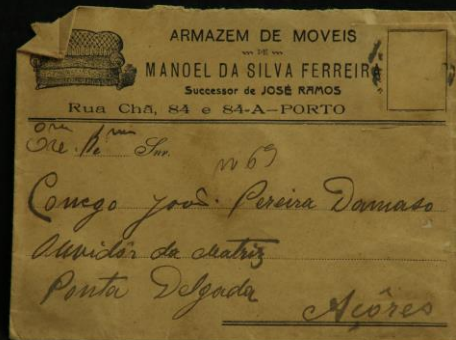 ARMAZEM DE MOVEIS
DE
MANOEL DA SILVA FERREIRA
Successor de JOSÉ RAMOS
Rua Chã, 84 e 84-A—PORTO
Snr.
nº 69
Conego João Pereira Damaso
Ouvidôr da Matriz
Ponta Delgada
Açôres